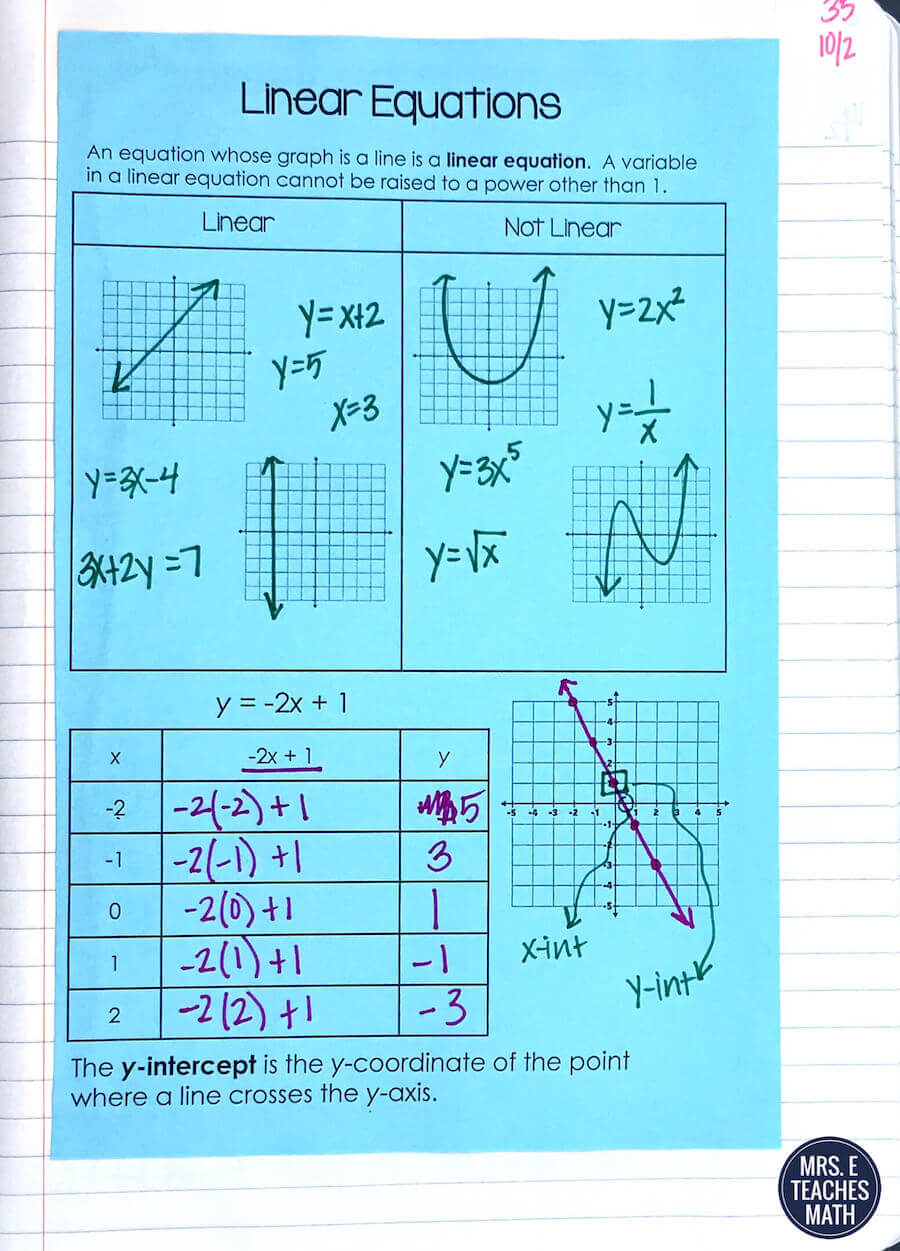 35
10/2
Linear Equations
An equation whose graph is a line is a linear equation. A variable
in a linear equation cannot be raised to a power other than 1.
Linear
Not Linear
y=x+2
y=5
x=3
y=3x-4
3x+2y=7
y=2x²
y=1/x
y=3x⁵
y=√x
y = -2x + 1
x -2x + 1 y
-2 -2(-2)+1 5
-1 -2(-1)+1 3
0 -2(0)+1 1
1 -2(1)+1 -1
2 -2(2)+1 -3
5
4
3
2
-5 -4 -3 -2 -1 1 2 3 4 5
-1
-2
-3
-4
-5
x-int
y-int
The y-intercept is the y-coordinate of the point
where a line crosses the y-axis.
MRS. E
TEACHES
MATH